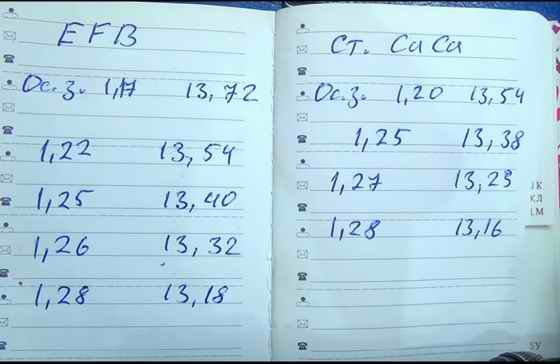 EFB
Ос.з. 1,17 13,72
1,22 13,54
1,25 13,40
1,26 13,32
1,28 13,18
ст. CaCa
Ос.з. 1,20 13,54
1,25 13,38
1,27 13,23
1,28 13,16